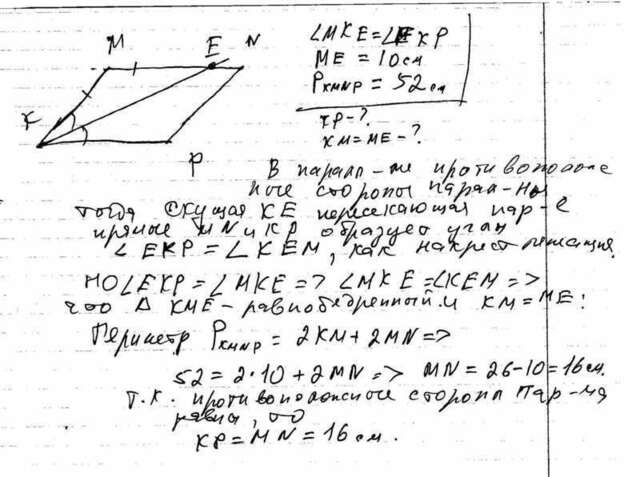 M E N
K
P
∠MKE = ∠EKP
ME = 10 см
P KMNP = 52 см
KP - ?
KM = ME - ?
В паралл-ме противополож
ные стороны парал-ны
тогда секущая KE пересекающая пар-е
прямые MN и KP образует углы
∠EKP = ∠KEM, как накрест лежащие.
НО ∠EKP = ∠MKE => ∠MKE = ∠KEM =>
что Δ KME - равнобедренный и KM = ME.
Периметр P KMNP = 2KM + 2MN =>
52 = 2·10 + 2MN => MN = 26-10 = 16 см.
Т.к. противоположные стороны пар-ма
равны, то
KP = MN = 16 см.